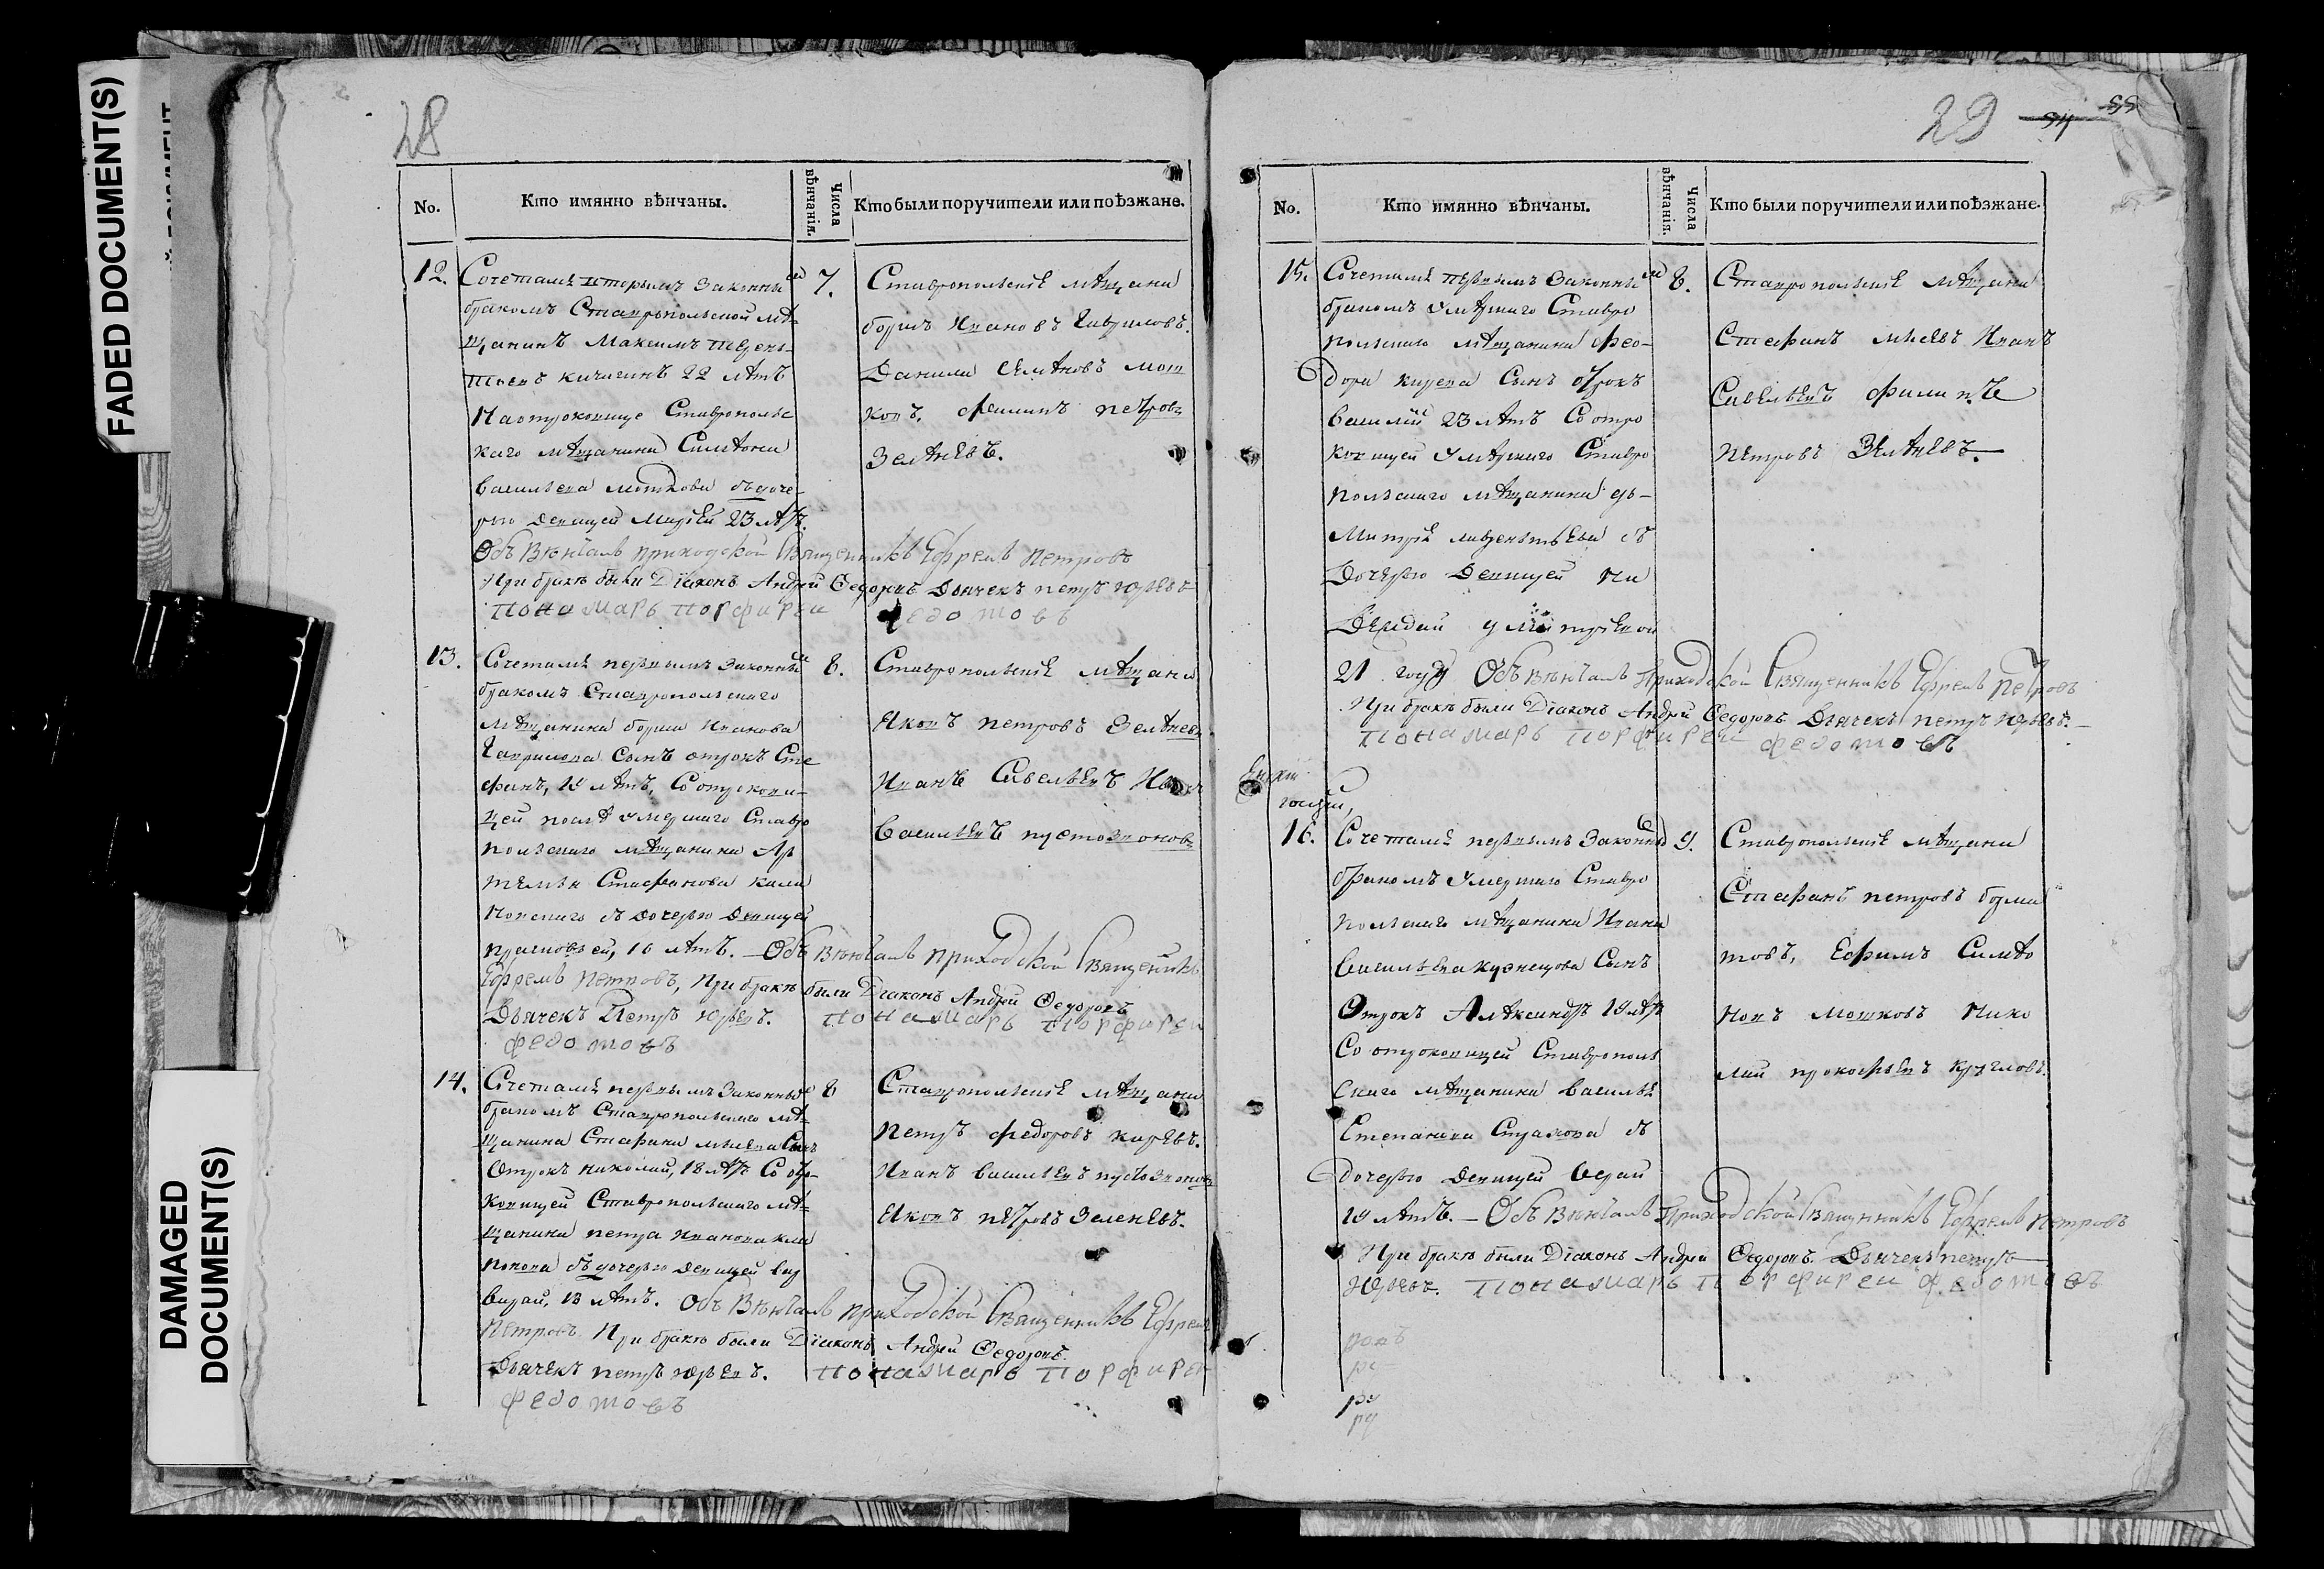 FADED DOCUMENT(S)
DAMAGED
DOCUMENT(S)
28
No.
Кто имянно вѣнчаны.
Числа
вѣнчанія.
Кто были поручители или поѣзжане.
12.
Сочетался вторымъ законны
бракомъ Ставропольской мѣ-
щанинъ Максимъ
кичигинъ 22 лѣтъ
На отроковице Ставропольс
каго мѣщанина Симеона
Васильева мошкова съ доче-
рью Девицей Марьей 23 лѣтъ.
7.
Ставропольскіе мѣщани
борисъ Ивановъ Гавриловъ.
Данила Семѣновъ мош
ковъ. филипъ петровъ
Зелѣневъ.
Объ вѣнчалъ приходской Священникъ Ефремъ Петровъ
При бракѣ были Діаконъ Андрей Федоровъ Дьячекъ петръ юрьевъ
Понамарь порфиреи федотовъ
13.
Сочетался первымъ законны
бракомъ Ставропольскаго
мѣщанина бориса Иванова
Гаврилова сынъ отрокъ Сте
фанъ, 19 лѣтъ, Со отрокови-
цей послѣ умершаго Ставро
польскаго мѣщанина Ар
темья Стефанова кали
с дочерью девицей
16 лѣтъ. — Объ вѣнчалъ приходской Священникъ
Ефремъ Петровъ, При бракѣ были Діаконъ Андрей Федоровъ
Дьячекъ Петръ юрьевъ. Понамарь порфиреи
федотовъ
8.
Ставропольскіе мѣщани
Яковъ петровъ Зелѣневъ
Иванъ Савельевъ
Васильевъ пустозноновъ
14.
Сочетался первымъ законны
бракомъ Ставропольскаго мѣ-
щанина Стефана мысева сынъ
Отрокъ николай, 18 лѣтъ Со отро-
ковицей Ставропольскаго мѣ-
щанина петра иванова
съ дочерью девицей
18 лѣтъ. Объ вѣнчалъ приходской Священникъ Ефремъ
Петровъ При бракѣ были Діаконъ Андрей Федоровъ
Дьячекъ петръ юрьевъ. Понамарь порфиреи
федотовъ
8
Ставропольскіе мѣщани
Петръ федоровъ киревъ.
Иванъ васильевъ пустозноновъ
Яковъ петровъ Зеленевъ.
29
54
55
No.
Кто имянно вѣнчаны.
Числа
вѣнчанія.
Кто были поручители или поѣзжане.
15.
Сочетался первымъ законны
бракомъ умѣршаго Ставро
польскаго мѣщанина Фео-
дора кирева сынъ отрокъ
Василій 23 лѣтъ Со отро
ковицей умѣршаго Ставро
польскаго мѣщанина ды-
митрія съ
Дочерью Девицей На
димитріевой
21 году Объ вѣнчалъ приходской Священникъ Ефремъ петровъ
При бракѣ были Діаконъ Андрей Федоровъ Дьячекъ петръ юрьевъ. —
Понамарь порфиреи федотовъ
8.
Ставропольскіе мѣщани
Стефанъ мысевъ Иванъ
Савельевъ филипъ
Петровъ Зелѣневъ.
16.
Сочетался первымъ законны
бракомъ умершаго Ставро
польскаго мѣщанина Ивана
Васильева кузнецова сынъ
Отрокъ Александръ 19 лѣтъ
Со отроковицей Ставрополь
скаго мѣщанина Василья
Степанова Страхова съ
дочерью девицей верай
19 лѣтъ. — Объ вѣнчалъ приходской Священникъ Ефремъ Петровъ
При бракѣ были Діаконъ Андрей Федоровъ Дьячекъ петръ
Юрьевъ. Понамарь порфиреи федотовъ
9.
Ставропольскіе мѣщани
Стефанъ петровъ борма
товъ, Ефимъ Симѣо
новъ мошковъ Нико
лай прокофьевъ кругловъ.